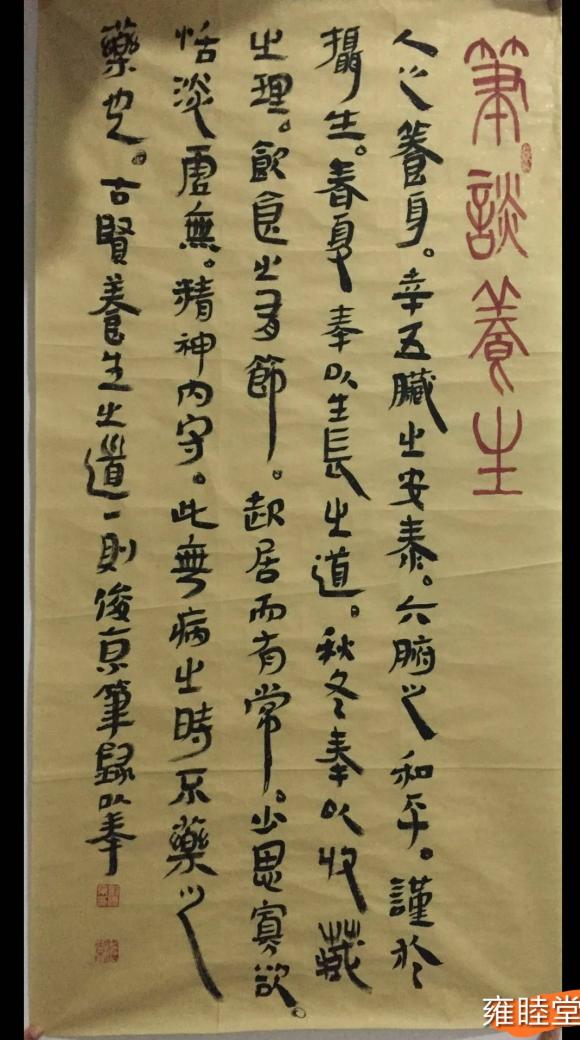 筆談養生
人之養身。幸五臟之安泰。六腑之和平。謹於
攝生。春夏奉以生長之道。秋冬奉以收藏
之理。飲食之有節。起居而有常。少思寡欲。
恬淡虛無。精神內守。此無病之時不藥之
藥也。古賢養生之道一則俊京筆録以奉
雍睦堂